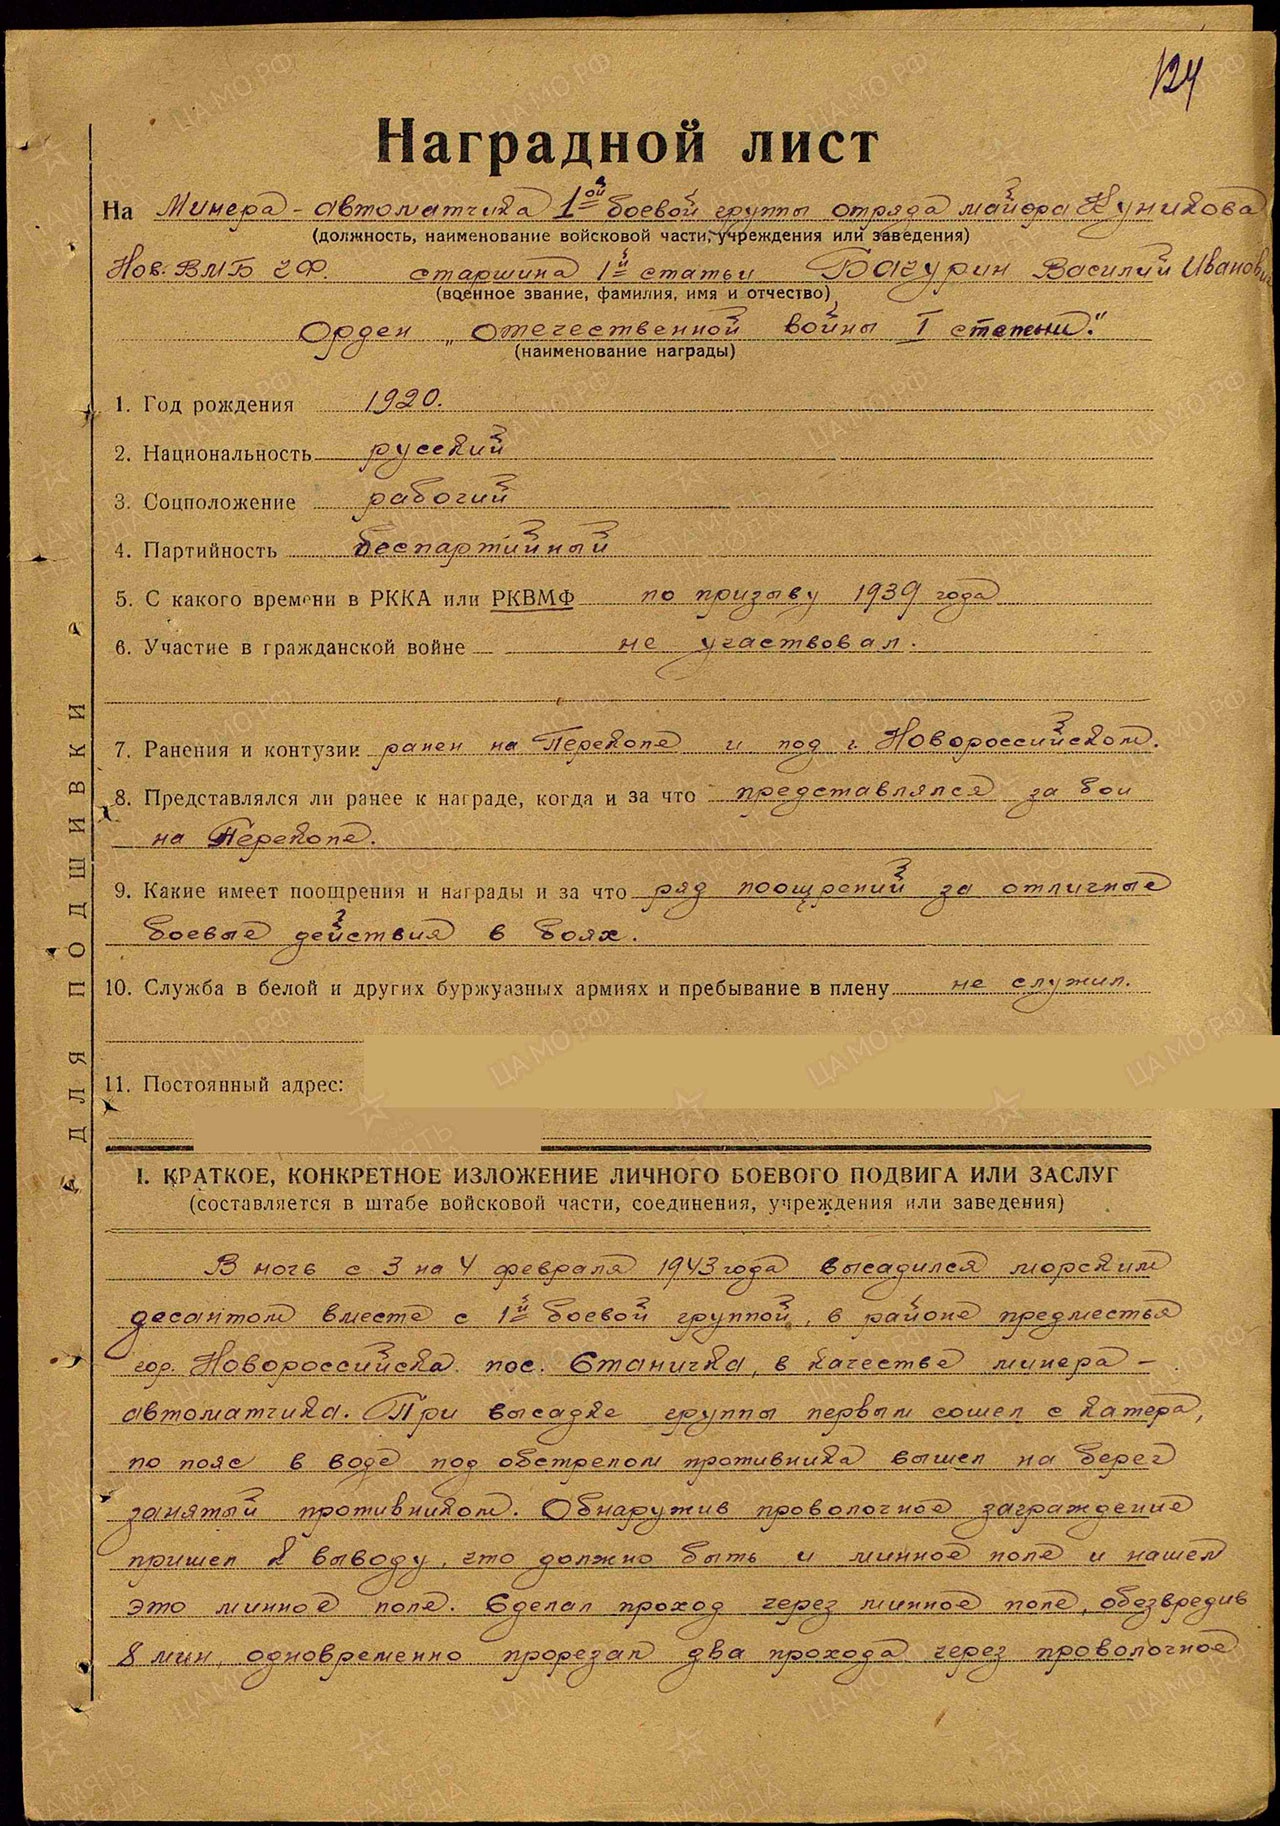 124
Наградной лист
На Минера-автоматчика 1ой боевой группы отряда майора Куникова
(должность, наименование войсковой части, учреждения или заведения)
Нов. ВМБ ЧФ. старшина 1й статьи Бачурин Василий Иванович
(военное звание, фамилия, имя и отчество)
Орден „отечественной войны I степени."
(наименование награды)
1. Год рождения 1920.
2. Национальность русский
3. Соцположение рабочий
4. Партийность беспартийный
5. С какого времени в РККА или РКВМФ по призыву 1939 года
6. Участие в гражданской войне не участвовал.
7. Ранения и контузии ранен на Перекопе и под г. Новороссийском.
8. Представлялся ли ранее к награде, когда и за что представлялся за бои
на Перекопе.
9. Какие имеет поощрения и награды и за что ряд поощрений за отличные
боевые действия в боях.
10. Служба в белой и других буржуазных армиях и пребывание в плену не служил.
11. Постоянный адрес:
ДЛЯ ПОДШИВКИ
I. КРАТКОЕ, КОНКРЕТНОЕ ИЗЛОЖЕНИЕ ЛИЧНОГО БОЕВОГО ПОДВИГА ИЛИ ЗАСЛУГ
(составляется в штабе войсковой части, соединения, учреждения или заведения)
В ночь с 3 на 4 февраля 1943 года высадился морским
десантом вместе с 1й боевой группой, в районе предместья
гор. Новороссийска. пос. Станичка, в качестве минера-
автоматчика. При высадке группы первым сошел с катера,
по пояс в воде под обстрелом противника вышел на берег
занятый противником. Обнаружив проволочное заграждение
пришел к выводу, что должно быть и минное поле и нашел
это минное поле. Сделал проход через минное поле, обезвредив
8 мин, одновременно прорезал два прохода через проволочное
ЦАМО.РФ
ПАМЯТЬ НАРОДА